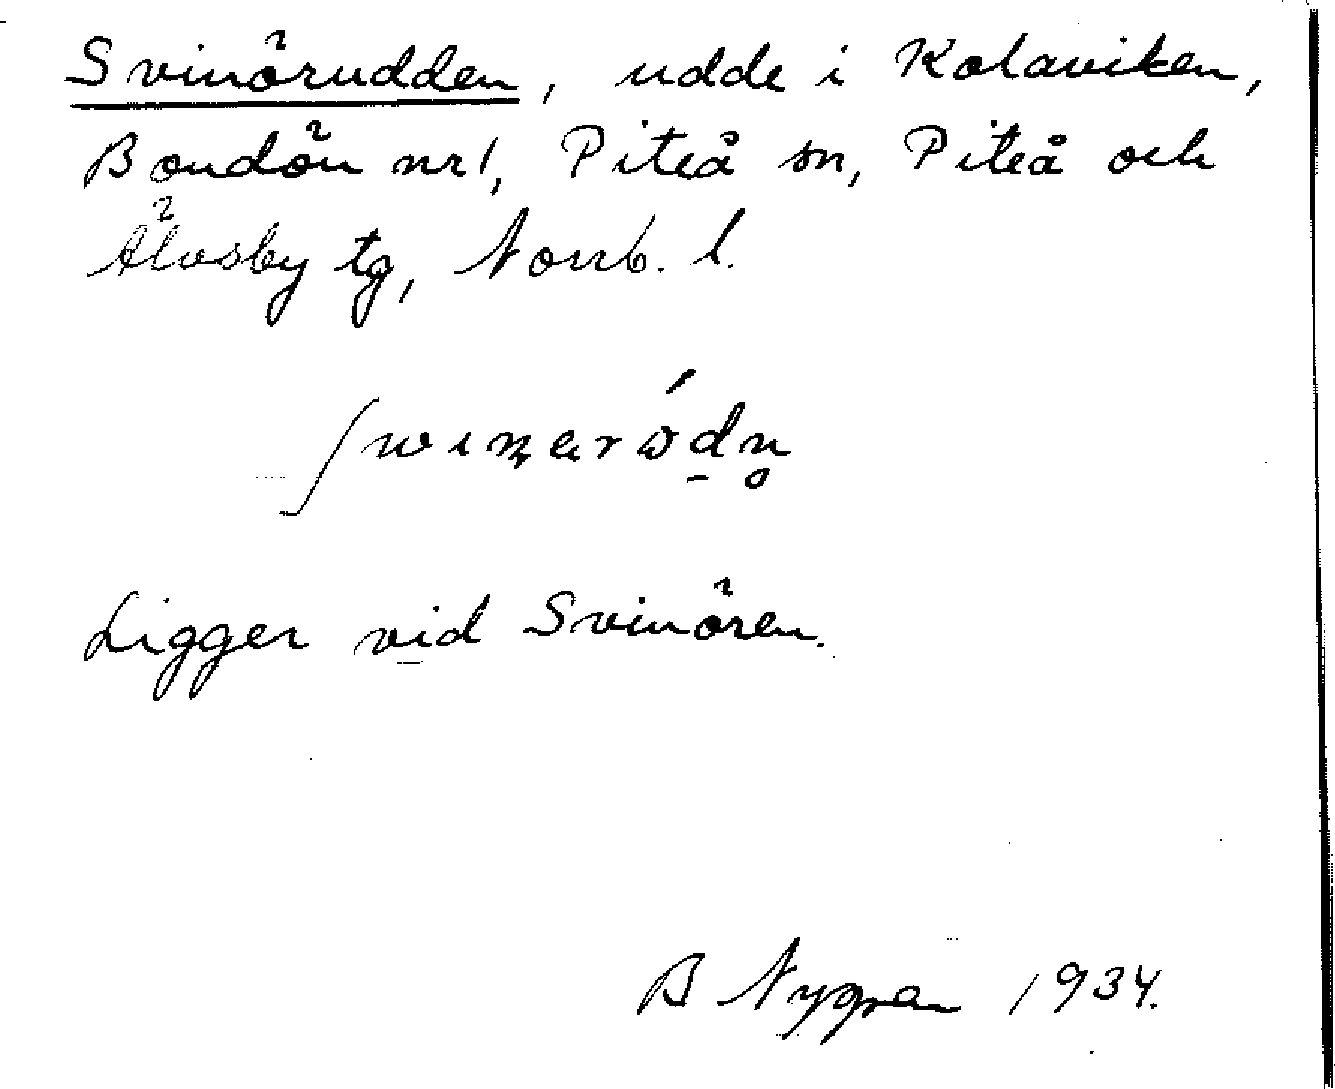 Svinörudden, udde i Kolaviken,
Bondön nr 1, Piteå sn, Piteå och
Älvsby tg, Norrb. l.
Ligger vid Svinören.
B Nygren 1934.